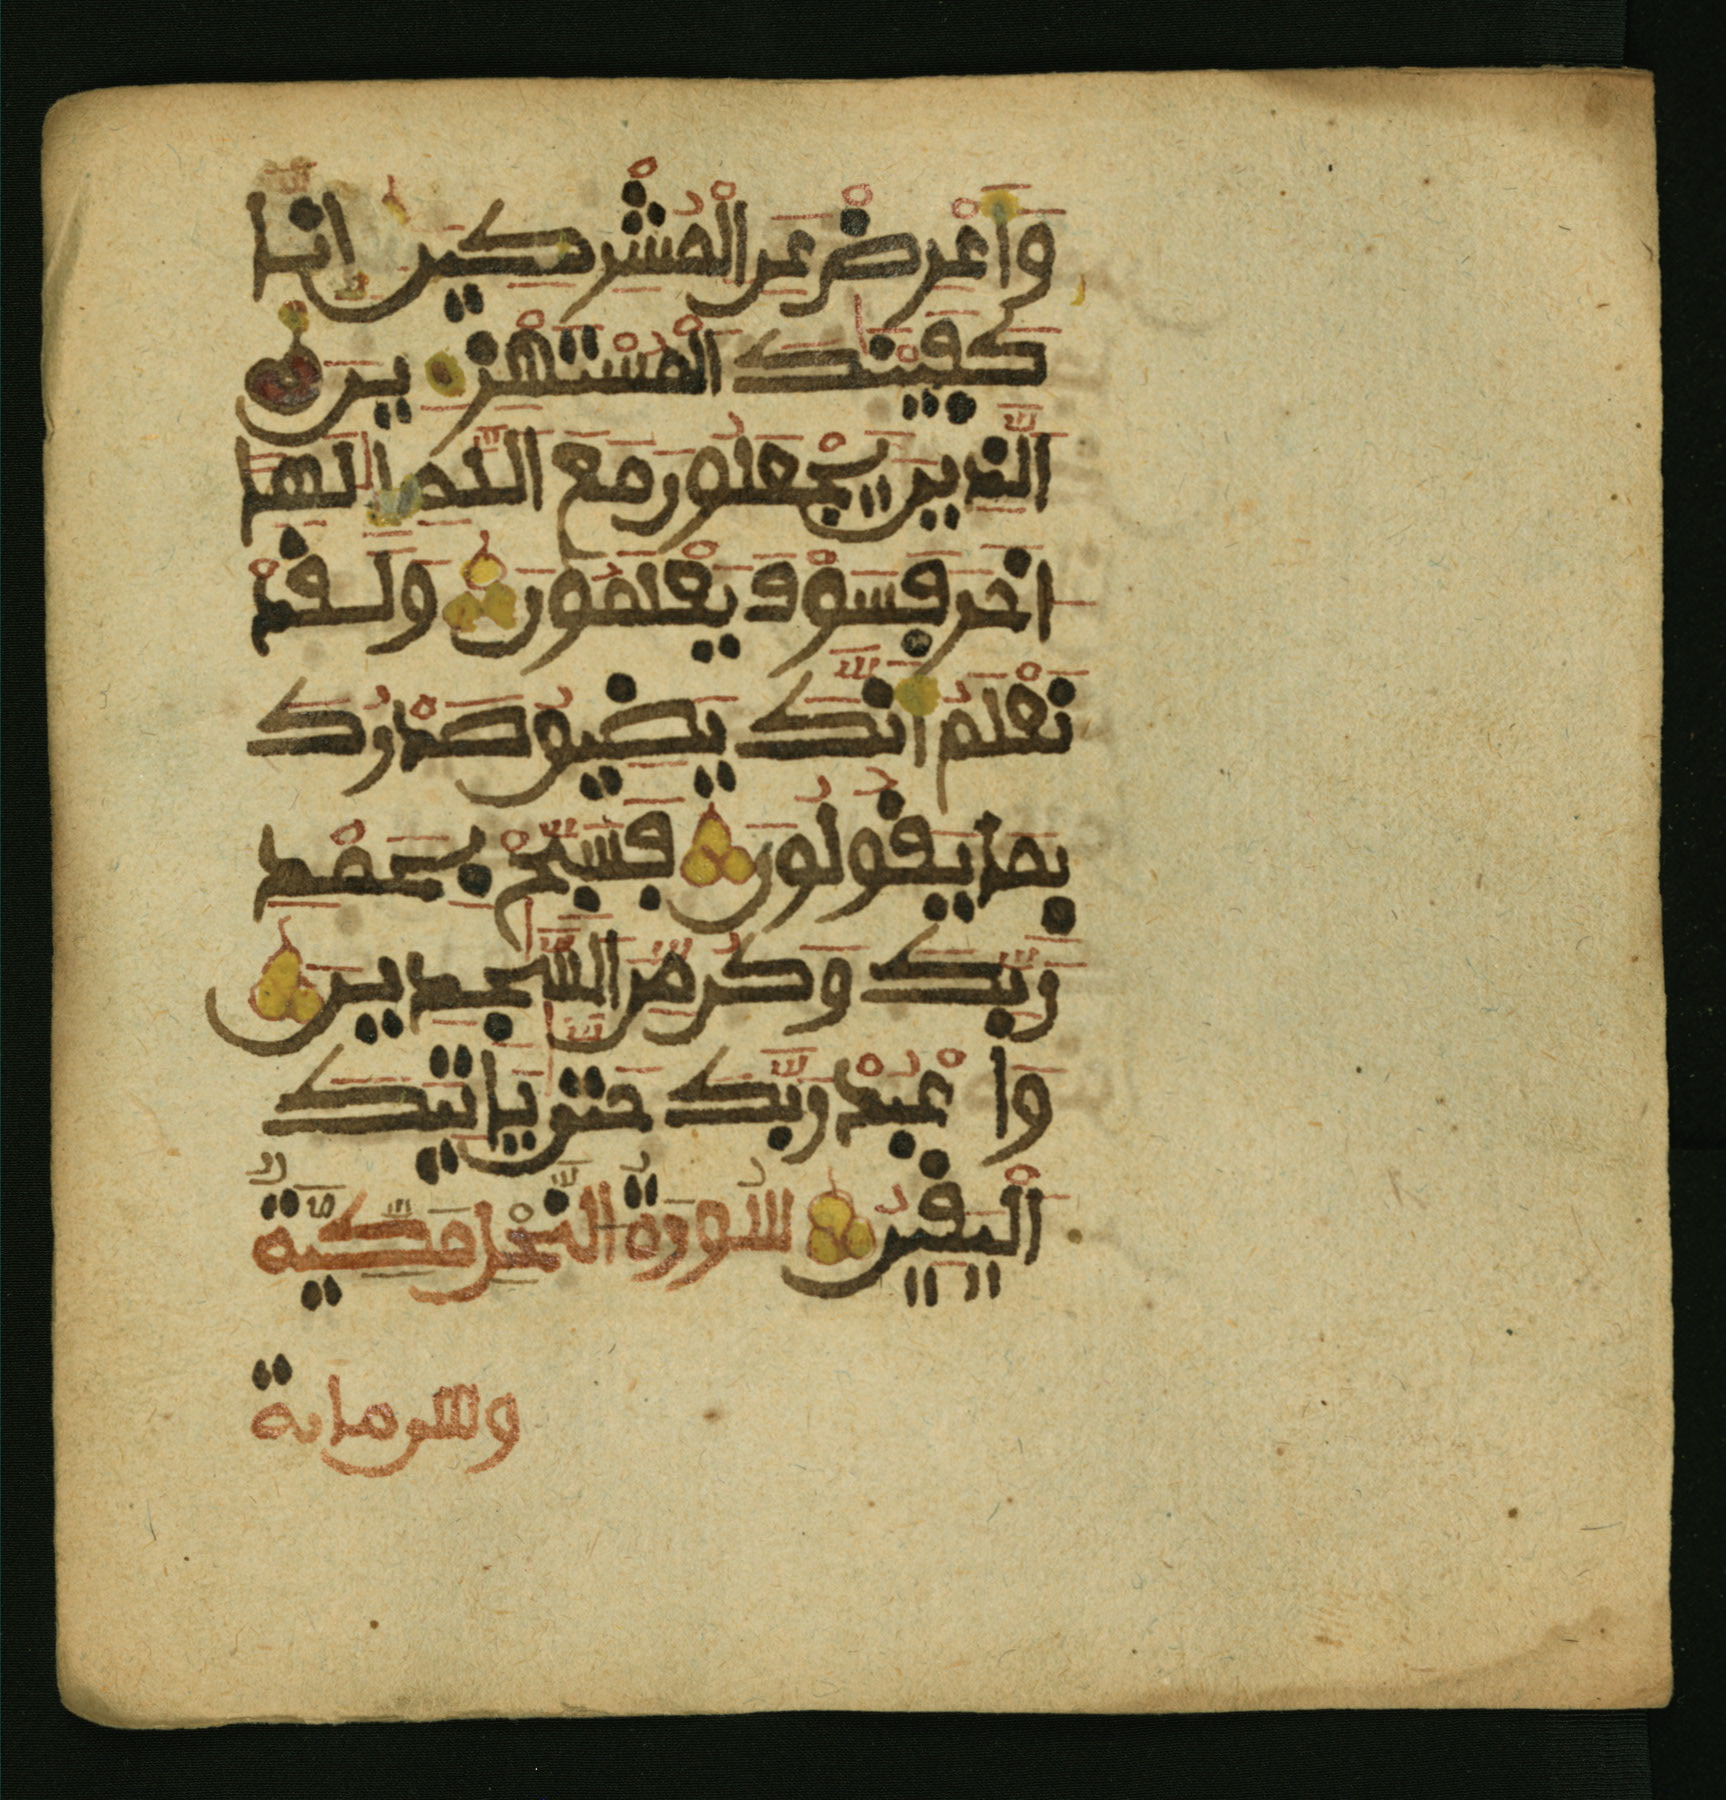 وَأَعْرِضْ عَنِ الْمُشْرِكِينَ إِنَّا
كَفَيْنَٰكَ الْمُسْتَهْزِءِينَ
الَّذِينَ يَجْعَلُونَ مَعَ اللَّهِ إِلَٰهًا
ءَاخَرَ فَسَوْفَ يَعْلَمُونَ وَلَقَدْ
نَعْلَمُ أَنَّكَ يَضِيقُ صَدْرُكَ
بِمَا يَقُولُونَ فَسَبِّحْ بِحَمْدِ
رَبِّكَ وَكُن مِّنَ السَّٰجِدِينَ
وَاعْبُدْ رَبَّكَ حَتَّىٰ يَاتِيَكَ
الْيَقِينُ سُورَةُ النَّحْلِ مَكِّيَّةٌ